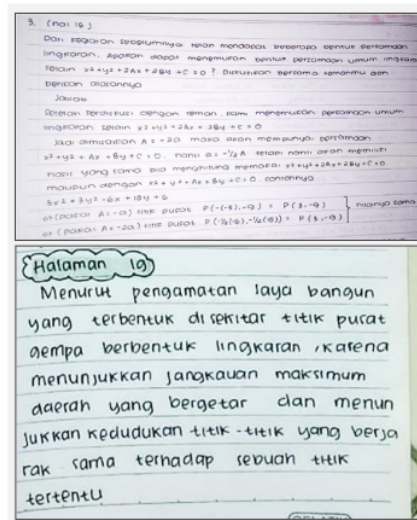 3. (hal 18)
Dari kegiatan sebelumnya telah mendapat beberapa bentuk persamaan
lingkaran. Apakah dapat menemukan bentuk persamaan umum lingkaran
selain x²+y²+2Ax+2By+C=0? Diskusikan bersama temanmu dan
berikan alasannya
Jawab
Setelah berdiskusi dengan teman, kami menemukan persamaan umum
lingkaran selain x²+y²+2Ax+2By+C=0
Jadi dimisalkan A = -2a maka akan mempunyai persamaan
x²+y²+Ax+By+C=0. nanti a = -½A tetapi nanti akan memiliki
hasil yang sama bila menghitung memakai x²+y²+2Ax+2By+C=0
maupun dengan x²+y²+Ax+By+C=0. contohnya
titik pusat
titik pusat
nilainya sama
Halaman 19
Menurut pengamatan saya bangun
yang terbentuk di sekitar titik pusat
gempa berbentuk lingkaran, karena
menunjukkan jangkauan maksimum
daerah yang bergetar dan menun
jukkan kedudukan titik-titik yang berja
rak sama terhadap sebuah titik
tertentu